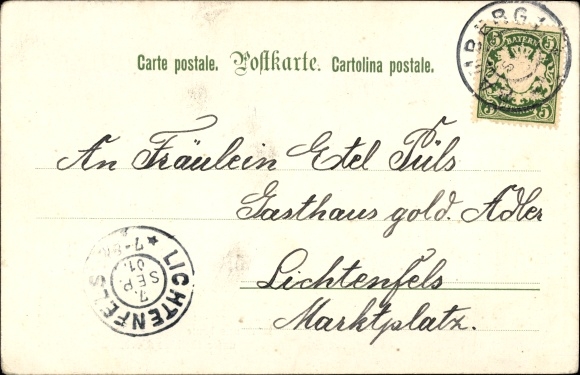 Carte postale. Postkarte. Cartolina postale.
BAMBERG 1
5 BAYERN 5
5 5
An Fräulein Etel Püls
Gasthaus gold. Adler
Lichtenfels
Marktplatz.
LICHTENFELS
7.
SEP.
01.